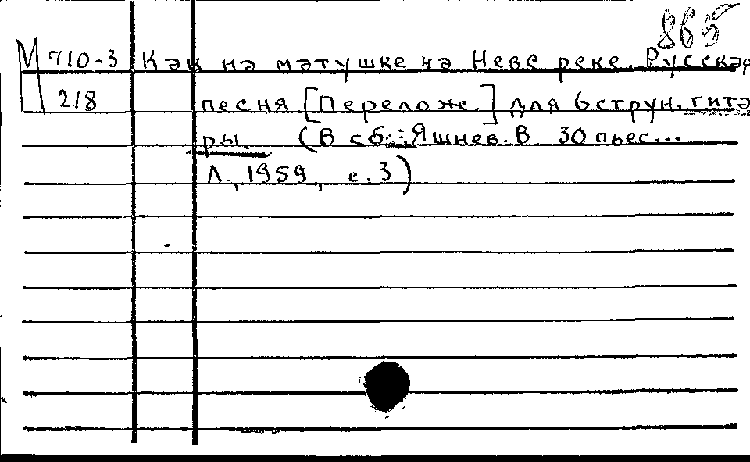 865
М 710-3 Как на матушке на Неве реке. Русская
218 песня [Перелож.] для 6струн. гита
ры. (В сб.: Яшнев. В. 30 пьес...
Л., 1959, с. 3)